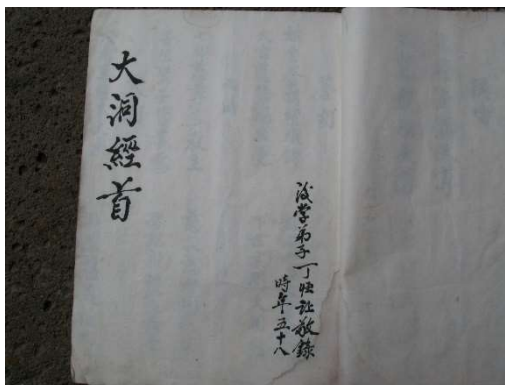 大洞經首
後学弟子丁恒让敬錄
時年五十八